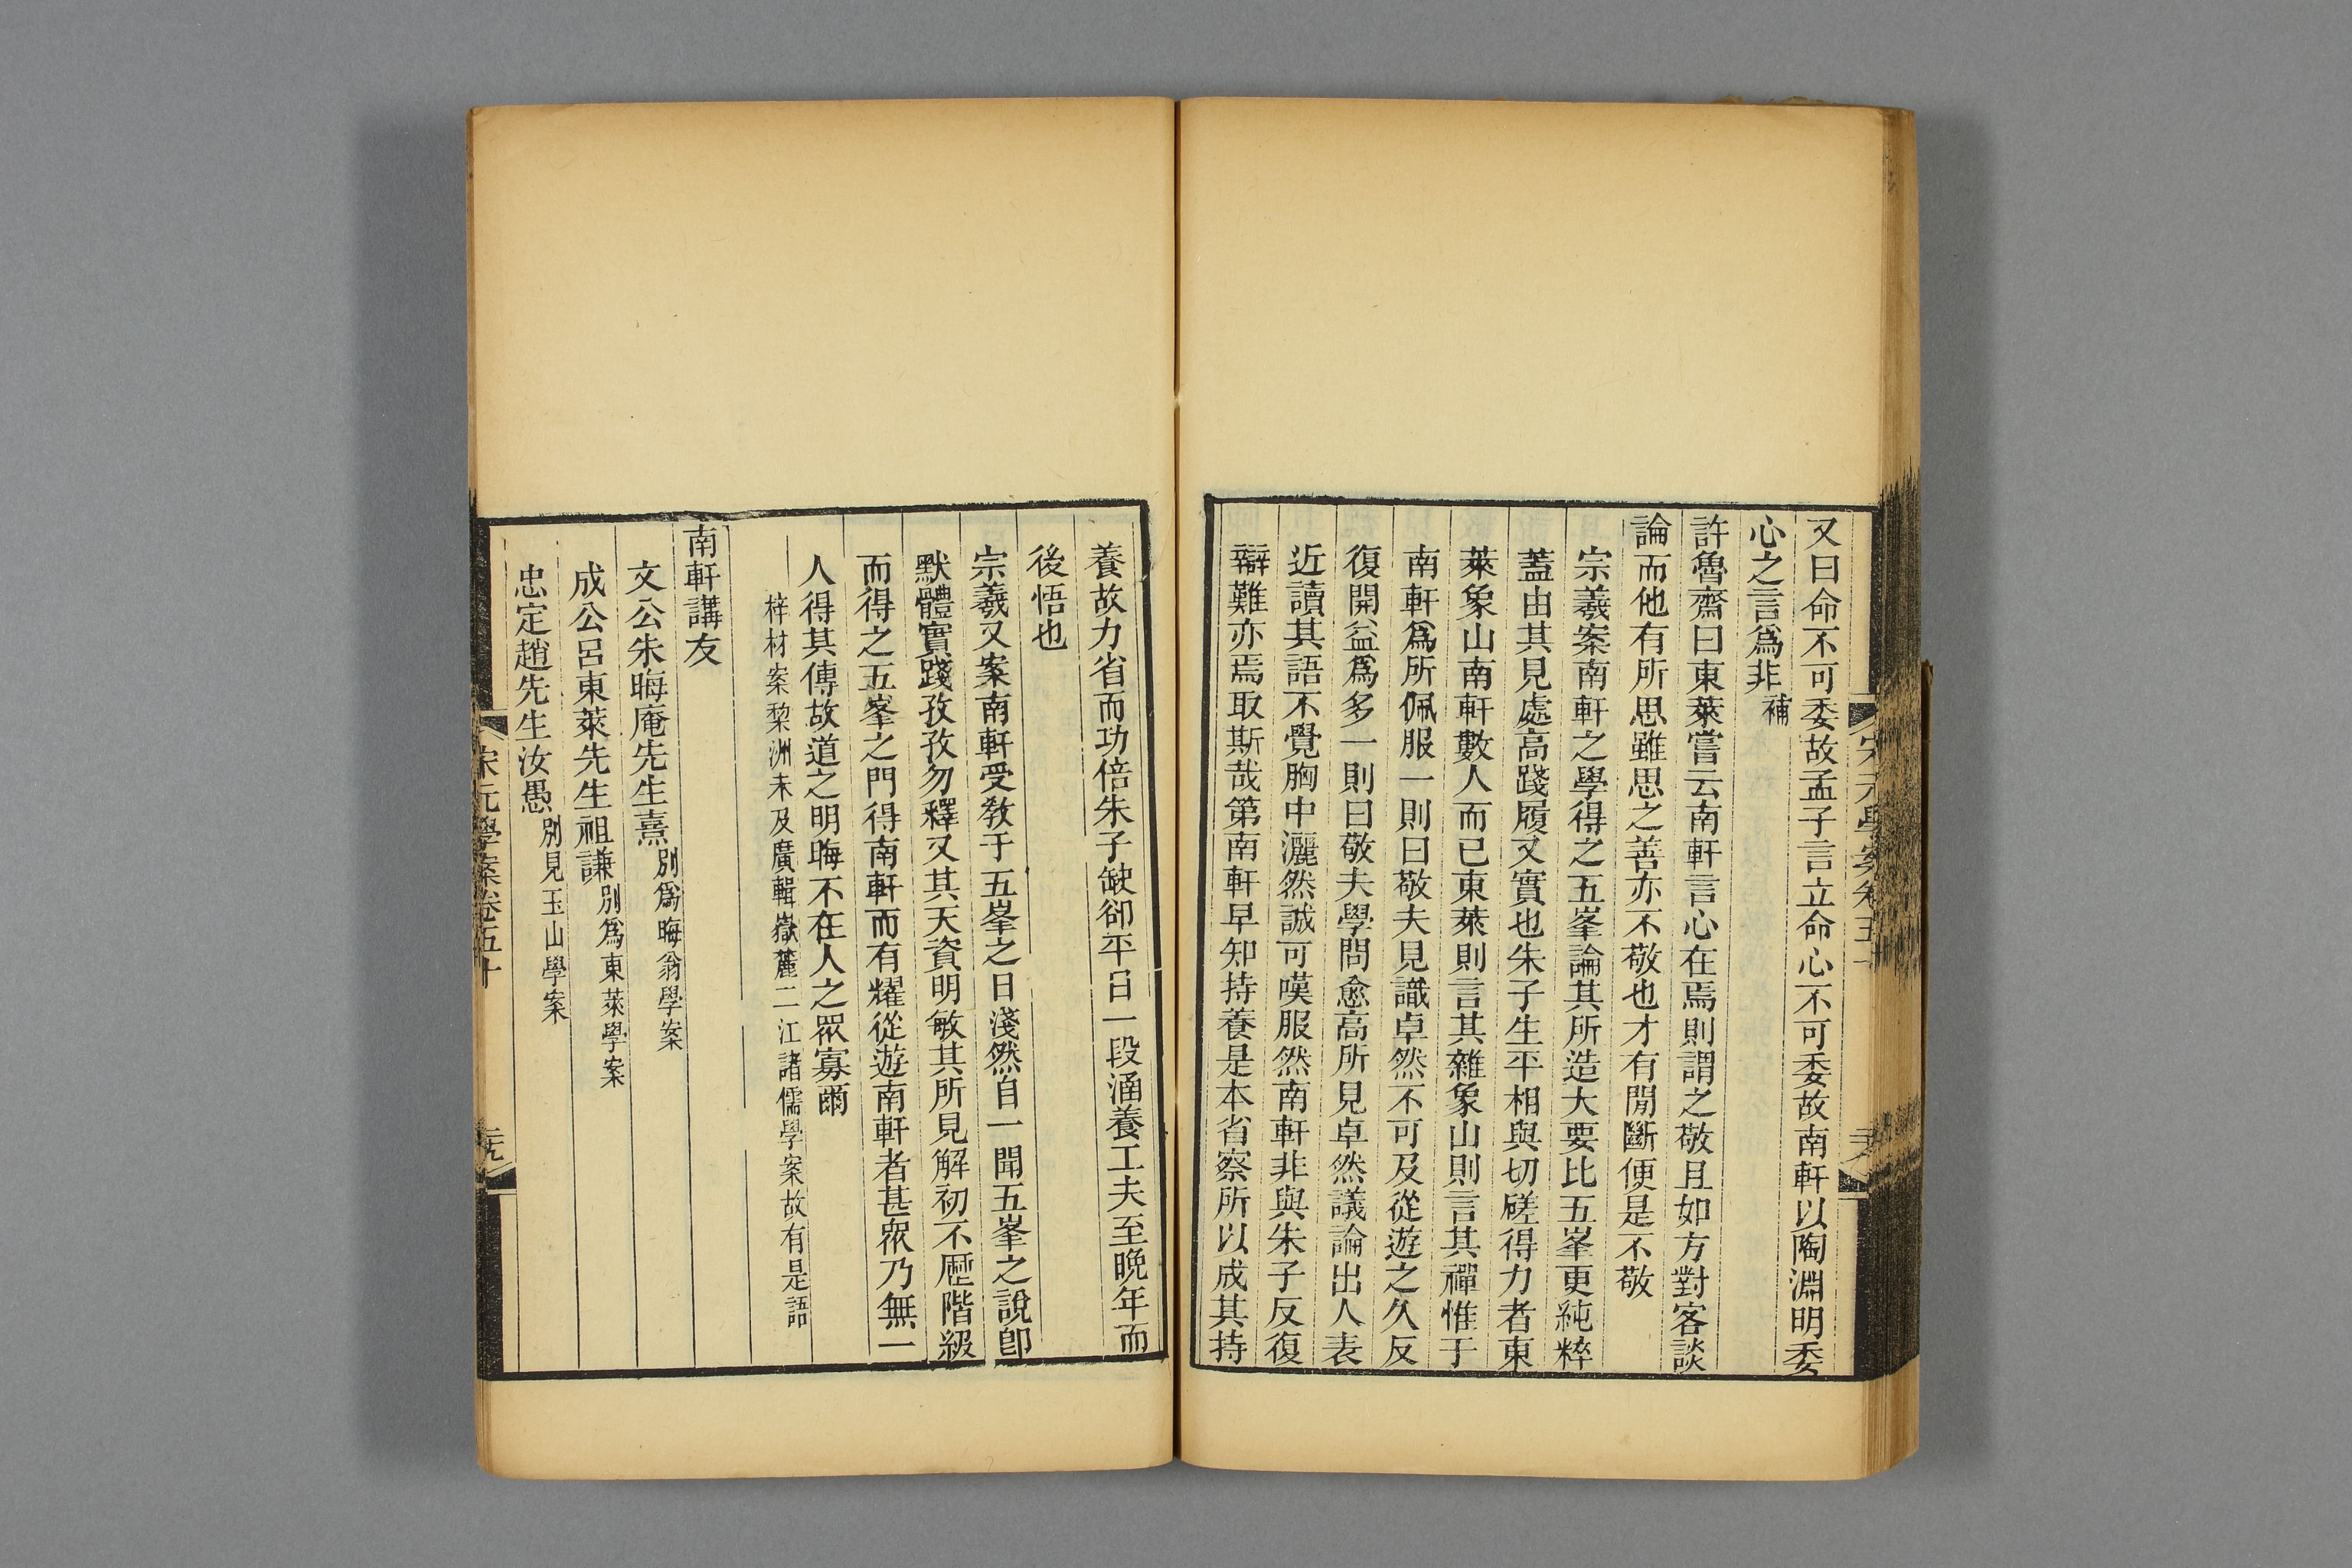 又曰命不可委故孟子言立命心不可委故南軒以陶淵明委
心之言爲非補
許魯齋曰東萊嘗云南軒言心在焉則謂之敬且如方對客談
論而他有所思雖思之善亦不敬也才有閒斷便是不敬
宗羲案南軒之學得之五峯論其所造大要比五峯更純粹
蓋由其見處高踐履又實也朱子生平相與切磋得力者東
萊象山南軒數人而已東萊則言其雜象山則言其禪惟于
南軒爲所佩服一則曰敬夫見識卓然不可及從遊之久反
復開益爲多一則曰敬夫學問愈高所見卓然議論出人表
近讀其語不覺胸中灑然誠可嘆服然南軒非與朱子反復
辯難亦焉取斯哉第南軒早知持養是本省察所以成其持
養故力省而功倍朱子缺卻平日一段涵養工夫至晚年而
後悟也
宗羲又案南軒受敎于五峯之日淺然自一聞五峯之說卽
默體實踐孜孜勿釋又其天資明敏其所見解初不歷階級
而得之五峯之門得南軒而有耀從遊南軒者甚眾乃無一
人得其傳故道之明晦不在人之眾寡爾
梓材案棃洲未及廣輯嶽麓二江諸儒學案故有是語
南軒講友
文公朱晦庵先生熹別爲晦翁學案
成公呂東萊先生祖謙別爲東萊學案
忠定趙先生汝愚別見玉山學案
宋元學案卷五十